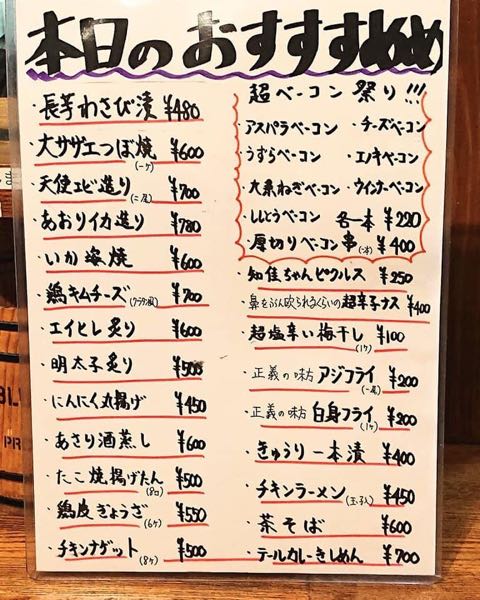 本日のおすすすめめ
・長芋わさび漬 ¥480
・大サザエつぼ焼(一ケ) ¥600
・天使エビ造り(二尾) ¥700
・あおりイカ造り ¥780
・いか塩焼 ¥600
・鶏キムチーズ(グラタン風) ¥700
・エイヒレ炙り ¥600
・明太子炙り ¥500
・にんにく丸揚げ ¥450
・あさり酒蒸し ¥600
・たこ焼揚げたん(8コ) ¥500
・鶏皮ぎょうざ(6ケ) ¥550
・チキンナゲット(8ケ) ¥500
超ベーコン祭り!!!
・アスパラベーコン ・チーズベーコン
・うずらベーコン ・エノキベーコン
・九条ねぎベーコン ・ウインナーベーコン
・ししとうベーコン 各一本 ¥220
・厚切りベーコン串(一本) ¥400
・知佳ちゃんピクルス ¥250
・鼻をぶん殴られるくらいの超辛子ナス ¥400
・超塩辛い梅干し(1ケ) ¥100
・正義の味方 アジフライ(一尾) ¥200
・正義の味方 白身フライ(1ケ) ¥200
・きゅうり一本漬 ¥400
・チキンラーメン(玉子入) ¥450
・茶そば ¥600
・テールカレーきしめん ¥700